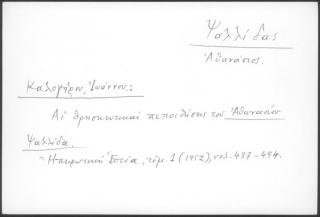 Ψαλλίδας
Ἀθανάσιος.
Καλογήρου, Ἰωάννου.:
Αἱ θρησκευτικαὶ πεποιθήσεις τοῦ Ἀθανασίου
Ψαλλίδα.
"Ἠπειρωτικὴ Ἑστία, τόμ. 1 (1952), σελ. 487-494.